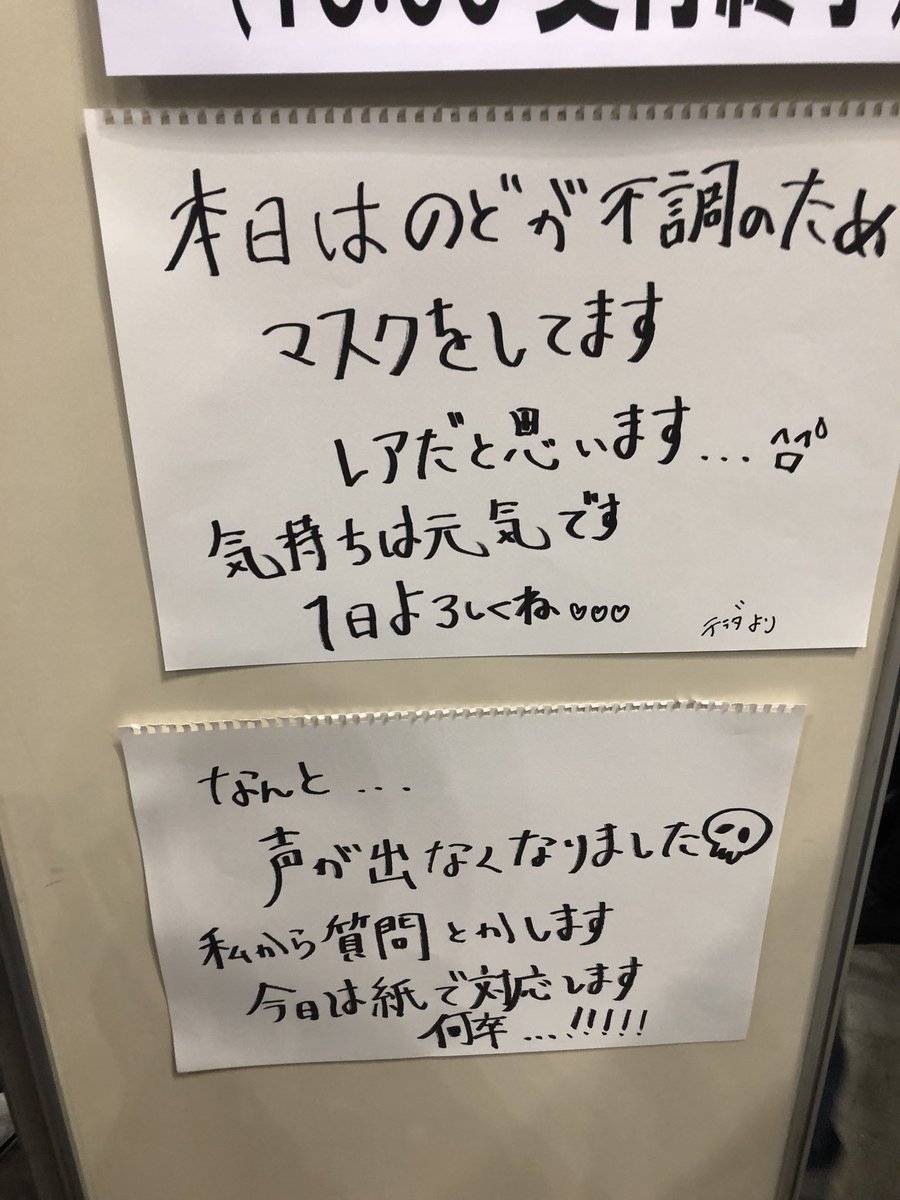 本日はのどが不調のため
マスクをしてます
レアだと思います...
気持ちは元気です
1日よろしくね♡♡♡
テラダより
なんと...
声が出なくなりました
私から質問とかします
今日は紙で対応します
何卒...!!!!!